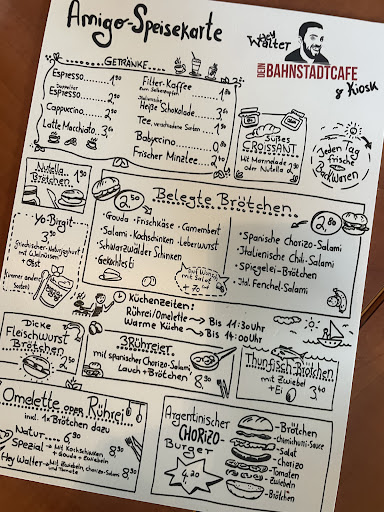 Amigo-Speisekarte
Hey Walter
DEIN BAHNSTADTCAFE
& Kiosk
GETRÄNKE
Espresso 1,80
Doppelter Espresso 2,90
Cappuccino 2,90
Latte Macchiato 3,60
Filter-Kaffee 1,80
zum Selberzapfen
Italienische Heiße Schokolade 3,60
Tee, verschiedene Sorten 2,40
Babyccino 0,80
Frischer Minztee 2,90
Süßes CROISSANT
Mit Marmelade
oder Nutella
Jeden Tag
frische
Backwaren
Nutella Brötchen 1,50
Yo-Birgit
3,50
Griechischer-Naturjoghurt
mit Walnüssen
+ Obst
(immer anders
sodele)
Belegte Brötchen
2,50
· Gouda · Frischkäse · Camembert
· Salami · Kochschinken · Leberwurst
· Schwarzwälder Schinken
· Gekochtes Ei
Auf Wunsch
mit Salat
2,80
· Spanische Chorizo-Salami
· Italienische Chili-Salami
· Spiegelei-Brötchen
· Ital. Fenchel-Salami
Küchenzeiten:
Rührei/Omelette → Bis 11:30 Uhr
Warme Küche → Bis 14:00 Uhr
Dicke
Fleischwurst
Brötchen
2,50
BRÜHREIER
mit spanischer Chorizo-Salami
Lauch + Brötchen 8,90
Thunfisch Brötchen
mit Zwiebel
+ Ei
3,40
Omelette ODER Rührei
incl. 1x Brötchen dazu
Natur 6,90
Spezial → Mit Kochschinken
+ Gouda + Zwiebeln 8,30
Hey Walter → Mit Zwiebeln, Chorizo-Salami
und Tomate 8,90
Argentinischer
CHORIZO
Burger
4,20
Brötchen
Chimichurri-Sauce
Salat
Chorizo
Tomaten
Zwiebeln
Brötchen